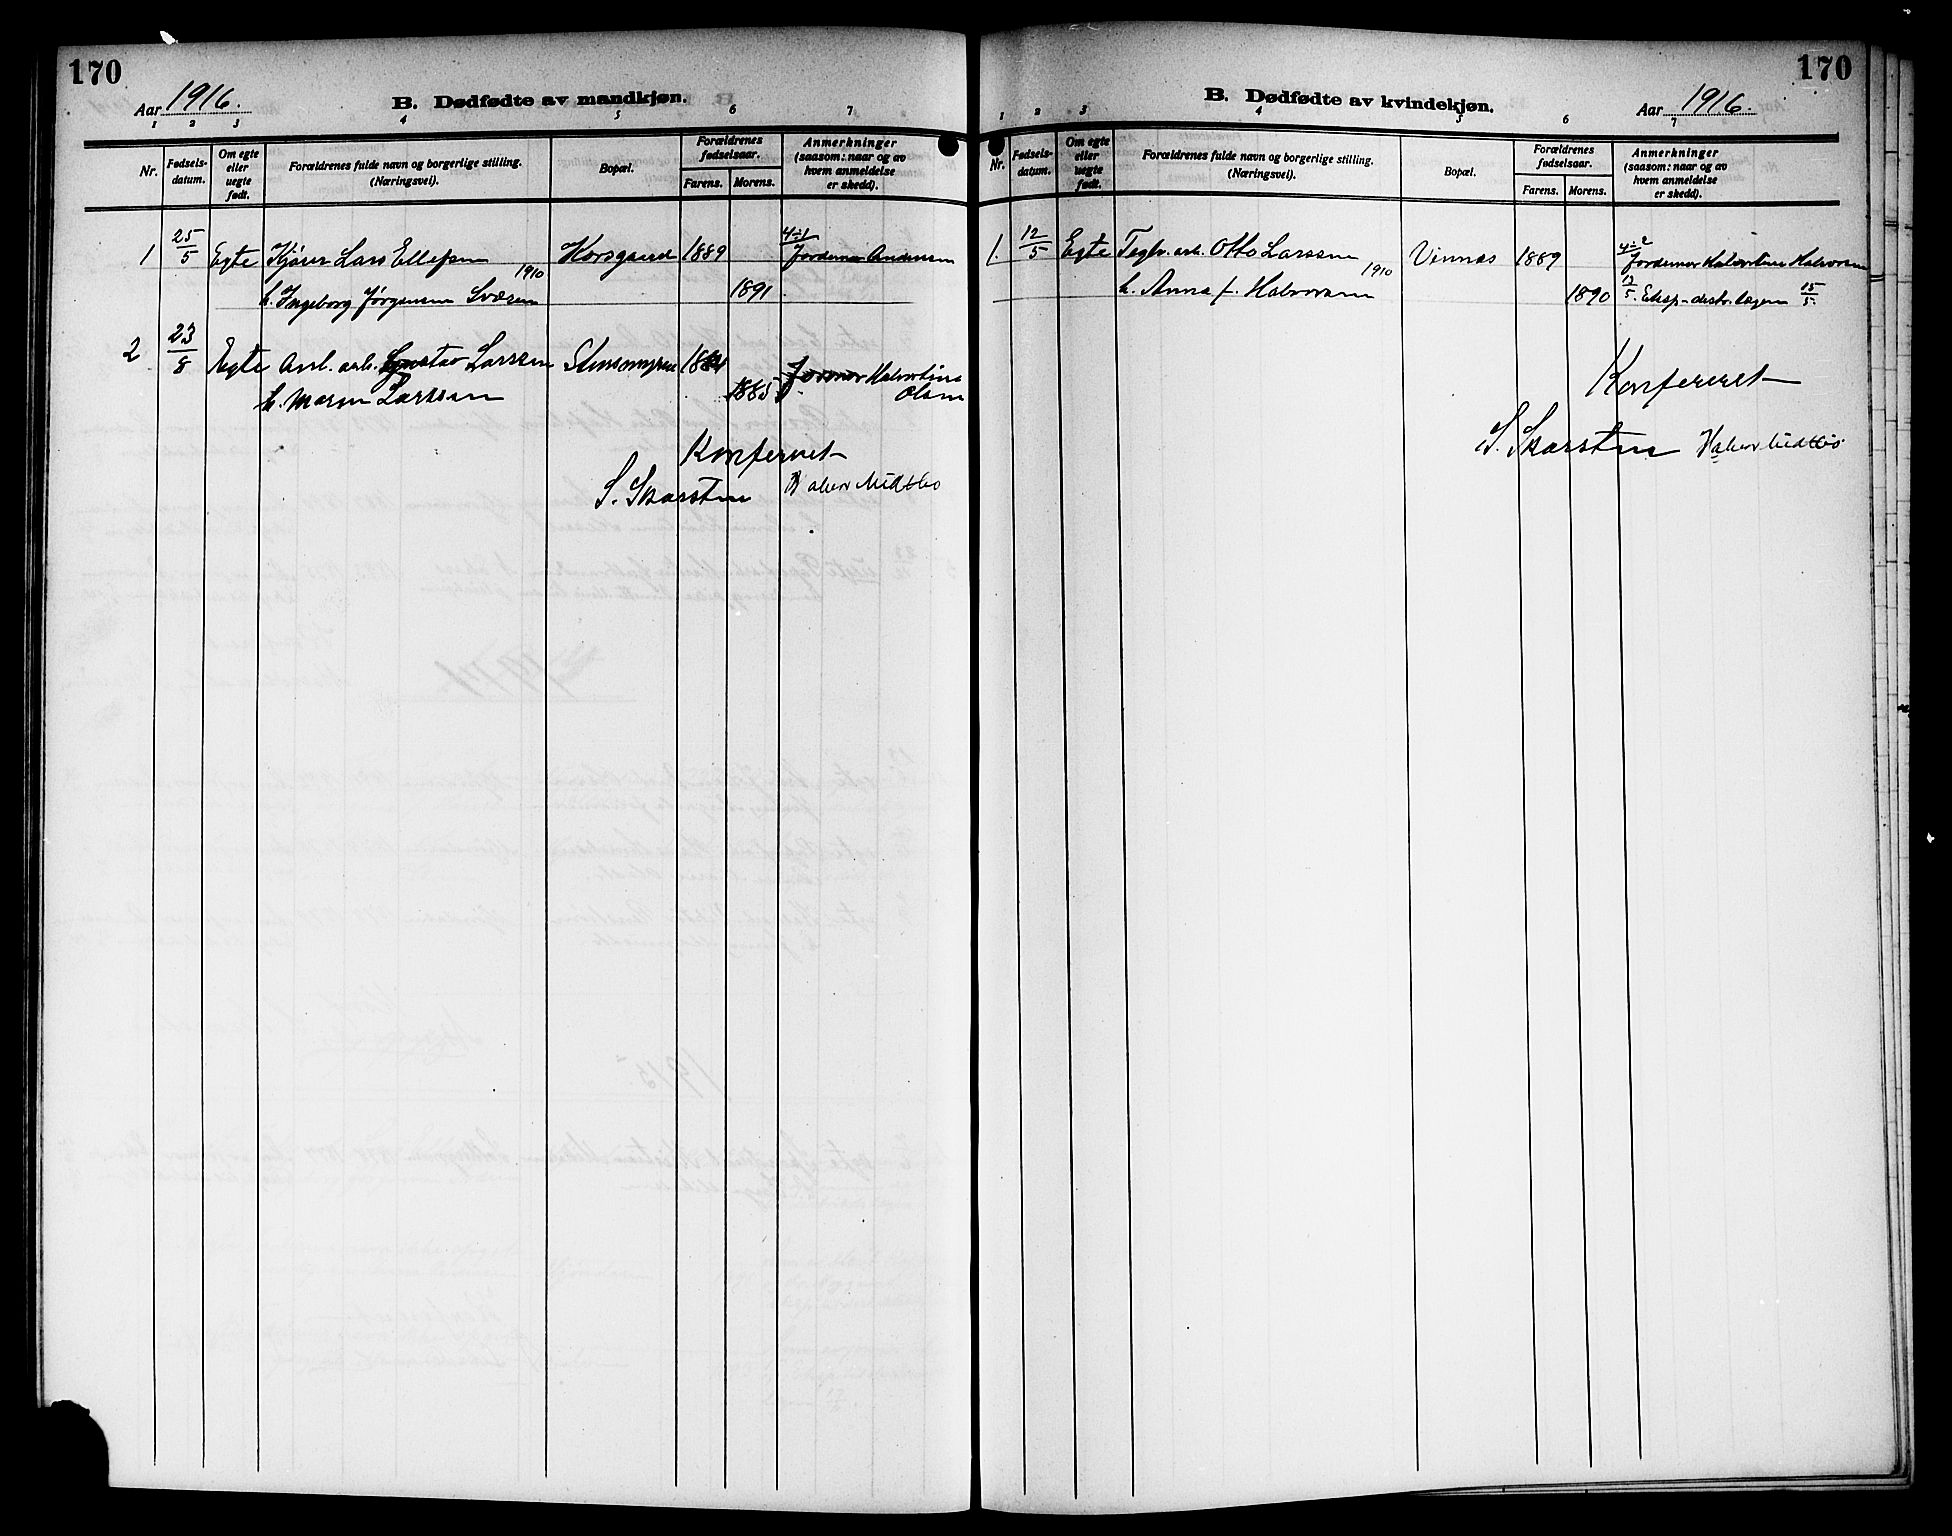 170
Aar 1916.
B. Dødfødte av mandkjøn.
1 2 3 4 5 6 7
Nr.
Fødsels-
datum.
Om egte
eller
uegte
født.
Forældrenes fulde navn og borgerlige stilling.
(Næringsvei).
Bopæl.
Forældrenes
fødselsaar.
Farens. Morens.
Anmerkninger
(saasom: naar og av
hvem anmeldelse
er skedd).
1 25/5 Egte Kjører Lars Ellefsen 1910 Korsgaard 1889 4÷1 Jordemor Andersen
h. Ingeborg Jørgensen 1891
2 23/8 Egte Anl. arb. Gustav Larssen 1884 Halvordine
h. Maren Larssen 1885 Olsen
Konfereret
S. Skarsten Halvor Midtbø
170
B. Dødfødte av kvindekjøn.
Aar 1916.
1 2 3 4 5 6 7
Nr.
Fødsels-
datum.
Om egte
eller
uegte
født.
Forældrenes fulde navn og borgerlige stilling.
(Næringsvei).
Bopæl.
Forældrenes
fødselsaar.
Farens. Morens.
Anmerkninger
(saasom: naar og av
hvem anmeldelse
er skedd).
1. 12/5 Egte Teglv. arb. Otto Larssen 1910 Vinnæs 1889 4÷2 Jordemor Halvordine Halvorsen
h. Anna f. Halvorsen 1890 12/5. Eksp. distr. lægen 15/5.
Konfereret
S. Skarsten Halvor Midtbø